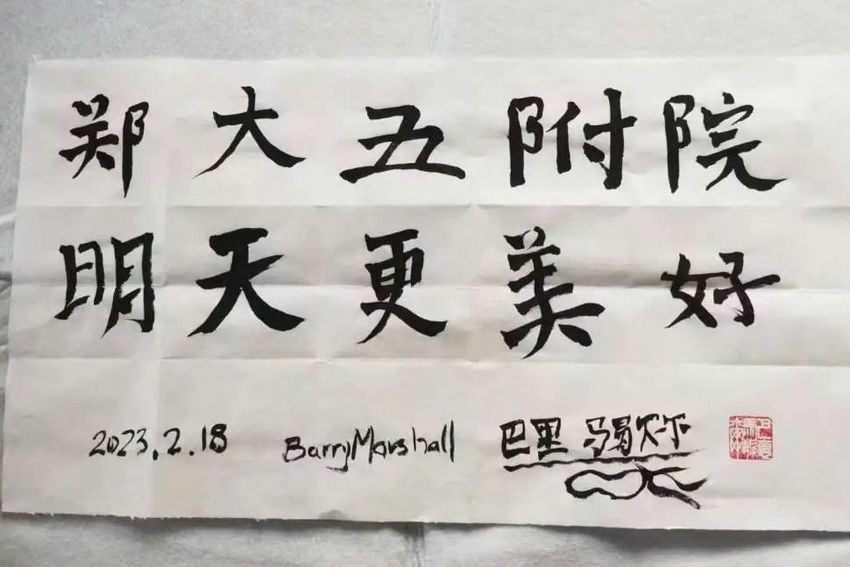 郑大五附院
明天更美好
2023.2.18 Barry Marshall 巴里 马歇尔